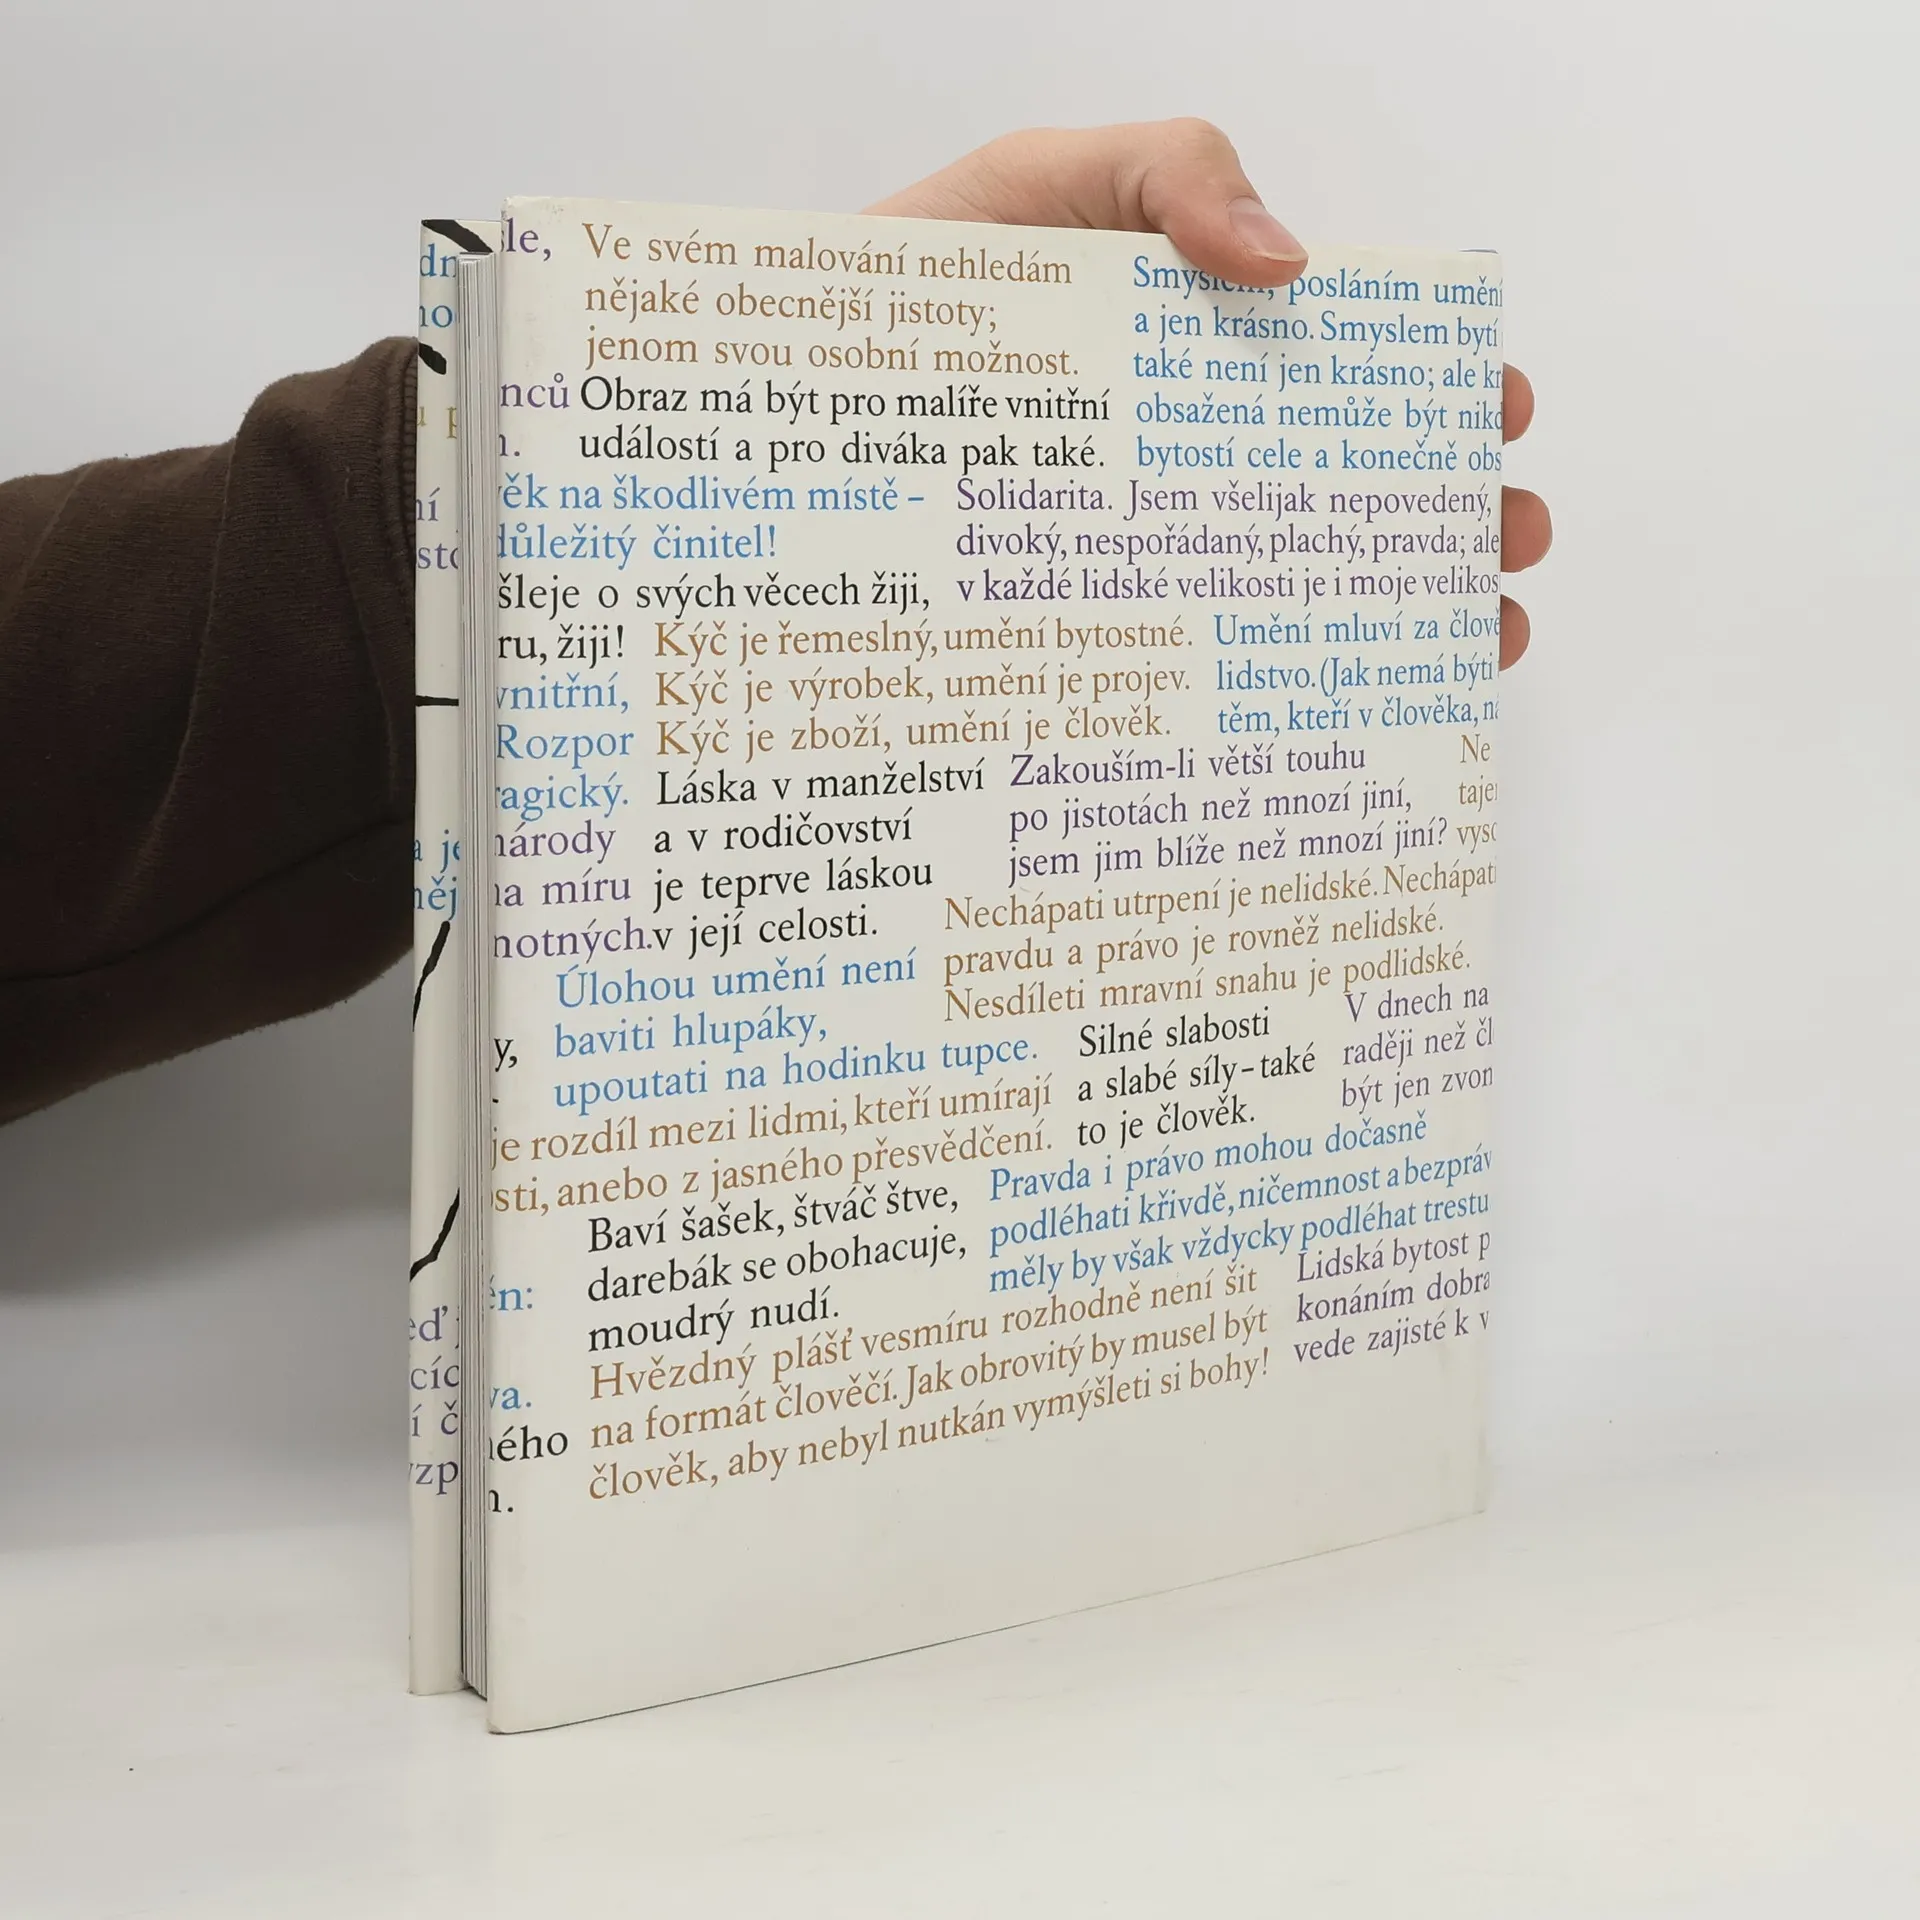 Ve svém malování nehledám
nějaké obecnější jistoty;
jenom svou osobní možnost.
posláním umění
a jen krásno. Smyslem bytí
také není jen krásno; ale
obsažená nemůže být
bytostí cele a konečně
nců Obraz má být pro malíře vnitřní
událostí a pro diváka pak také.
na škodlivém místě –
důležitý činitel!
Solidarita. Jsem všelijak nepovedený,
divoký, nespořádaný, plachý, pravda; ale
v každé lidské velikosti je i moje
šleje o svých věcech žiji,
ru, žiji!
vnitřní,
Rozpor
ragický.
národy
na míru
notných.
Kýč je řemeslný, umění bytostné.
Kýč je výrobek, umění je projev.
Kýč je zboží, umění je člověk.
Umění mluví za
lidstvo. (Jak nemá býti
těm, kteří v člověka,
Láska v manželství
a v rodičovství
je teprve láskou
v její celosti.
Zakouším-li větší touhu
po jistotách než mnozí jiní,
jsem jim blíže než mnozí jiní?
Ne
Nechápati utrpení je nelidské. Nechápati
pravdu a právo je rovněž nelidské.
Nesdíleti mravní snahu je podlidské.
Úlohou umění není
baviti hlupáky,
upoutati na hodinku tupce.
Silné slabosti
a slabé síly – také
to je člověk.
V dnech na
raději než
být jen
je rozdíl mezi lidmi, kteří umírají
sti, anebo z jasného přesvědčení.
Baví šašek, štváč štve,
darebák se obohacuje,
moudrý nudí.
Pravda i právo mohou dočasně
podléhati křivdě, ničemnost a
měly by však vždycky podléhat trestu
Lidská bytost
konáním
vede zajisté k
Hvězdný plášť vesmíru rozhodně není šit
na formát člověčí. Jak obrovitý by musel být
člověk, aby nebyl nutkán vymýšleti si bohy!